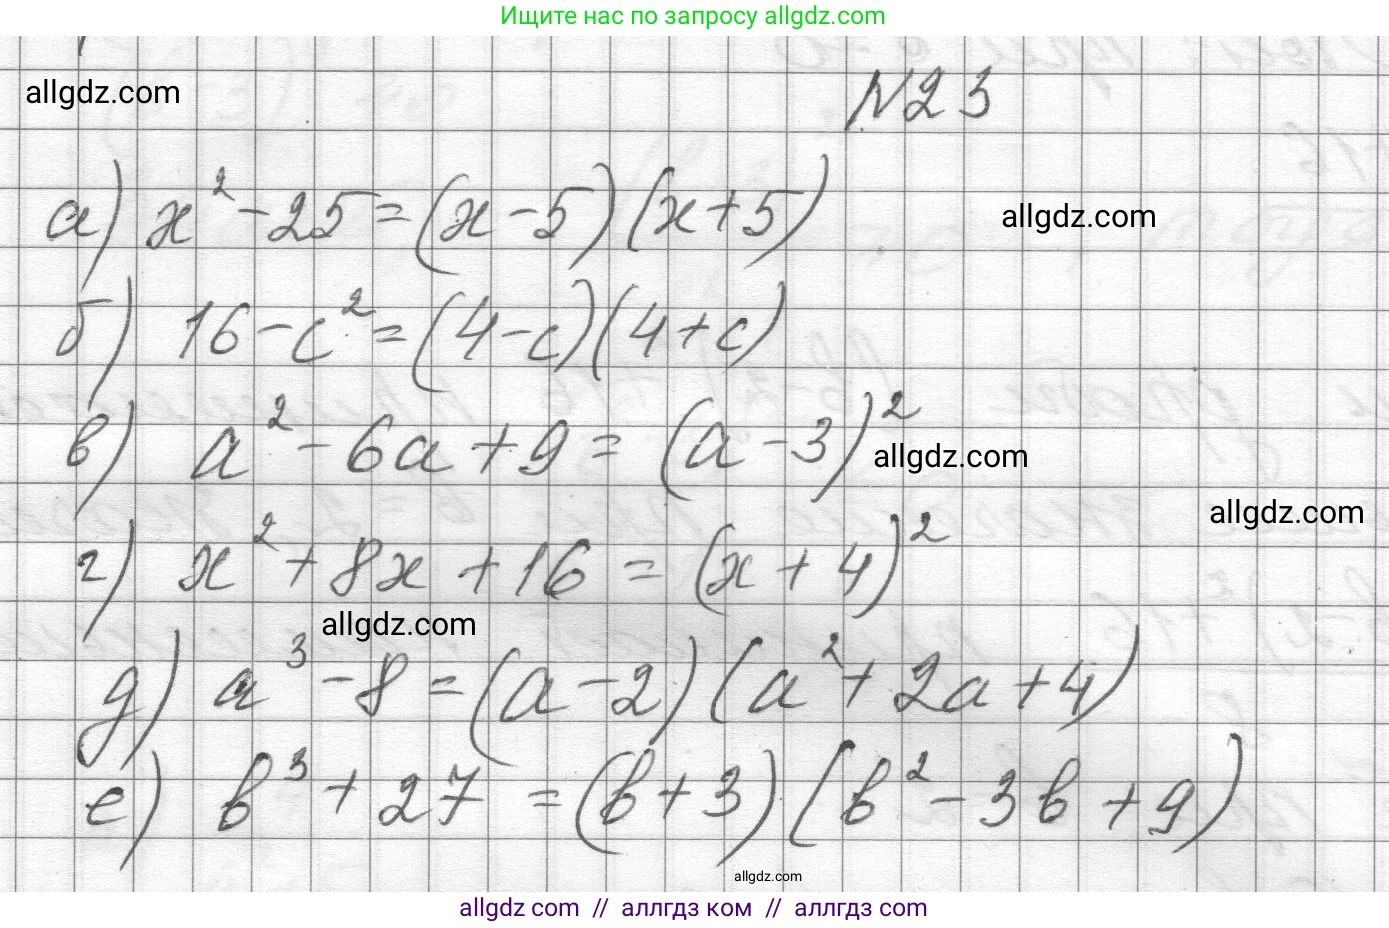 Ищите нас по запросу allgdz.com
allgdz.com
N23
а) x² - 25 = (x - 5)(x + 5)
allgdz.com
б) 16 - c² = (4 - c)(4 + c)
в) a² - 6a + 9 = (a - 3)²
allgdz.com
allgdz.com
г) x² + 8x + 16 = (x + 4)²
allgdz.com
д) a³ - 8 = (a - 2)(a² + 2a + 4)
е) b³ + 27 = (b + 3)(b² - 3b + 9)
allgdz.com
allgdz com // аллгдз ком // аллгдз com